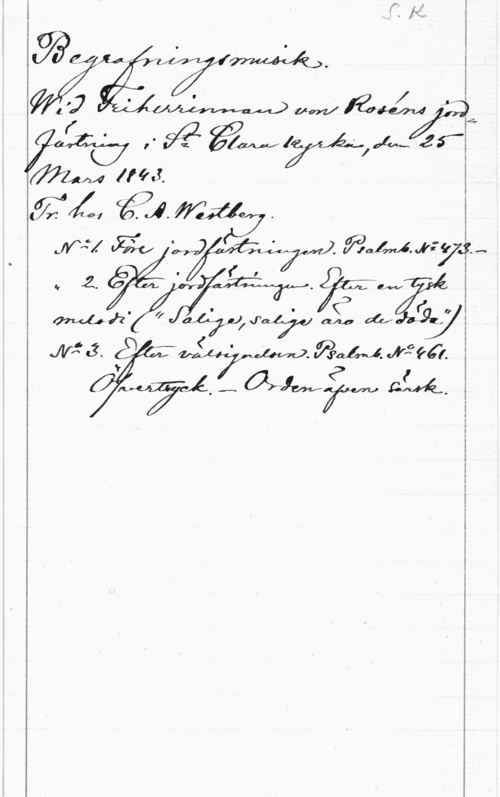 S. K.
Begrafningsmusik.
Wid Friherrinnan von Roséns jord-
fästning i S:t Clara kyrka, den 25
Mars 1843.
Tr. hos C. A. Westberg.
No 1. Före jordfästningen. Psalmb. No 473.—
" 2. Efter jordfästningen. Efter en tysk
melodi ("Salige, salige äro de döde")
No 3. Efter välsignelsen. Psalmb. No 461.
Öfvertryck. — Orden äfven särsk.